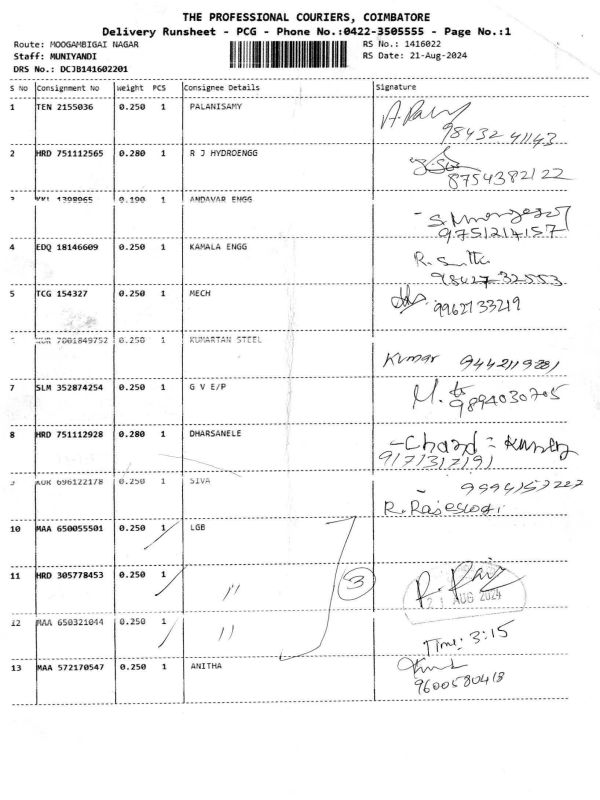 THE PROFESSIONAL COURIERS, COIMBATORE
Delivery Runsheet - PCG - Phone No.:0422-3505555 - Page No.:1
Route: MOOGAMBIGAI NAGAR RS No.: 1416022
Staff: MUNIYANDI RS Date: 21-Aug-2024
DRS No.: DCJB141602201
S No Consignment No Weight PCS Consignee Details Signature
1 TEN 2155036 0.250 1 PALANISAMY
98432 41143
2 HRD 751112565 0.280 1 R J HYDROENGG
8754382122
3 KKL 1398965 0.190 1 ANDAVAR ENGG
9751214157
4 EDQ 18146609 0.250 1 KAMALA ENGG
98427 32553
5 TCG 154327 0.250 1 MECH
9962733219
KUR 7001849752 0.250 1 KUMARTAN STEEL
Kumar
7 SLM 352874254 0.250 1 G V E/P
9894030705
8 HRD 751112928 0.280 1 DHARSANELE
9 KUR 696122178 0.250 1 SIVA
10 MAA 650055501 0.250 1 LGB
11 HRD 305778453 0.250 1 〃 3
21 AUG 2024
12 MAA 650321044 0.250 1 〃
Time: 3:15
13 MAA 572170547 0.250 1 ANITHA
9600580418